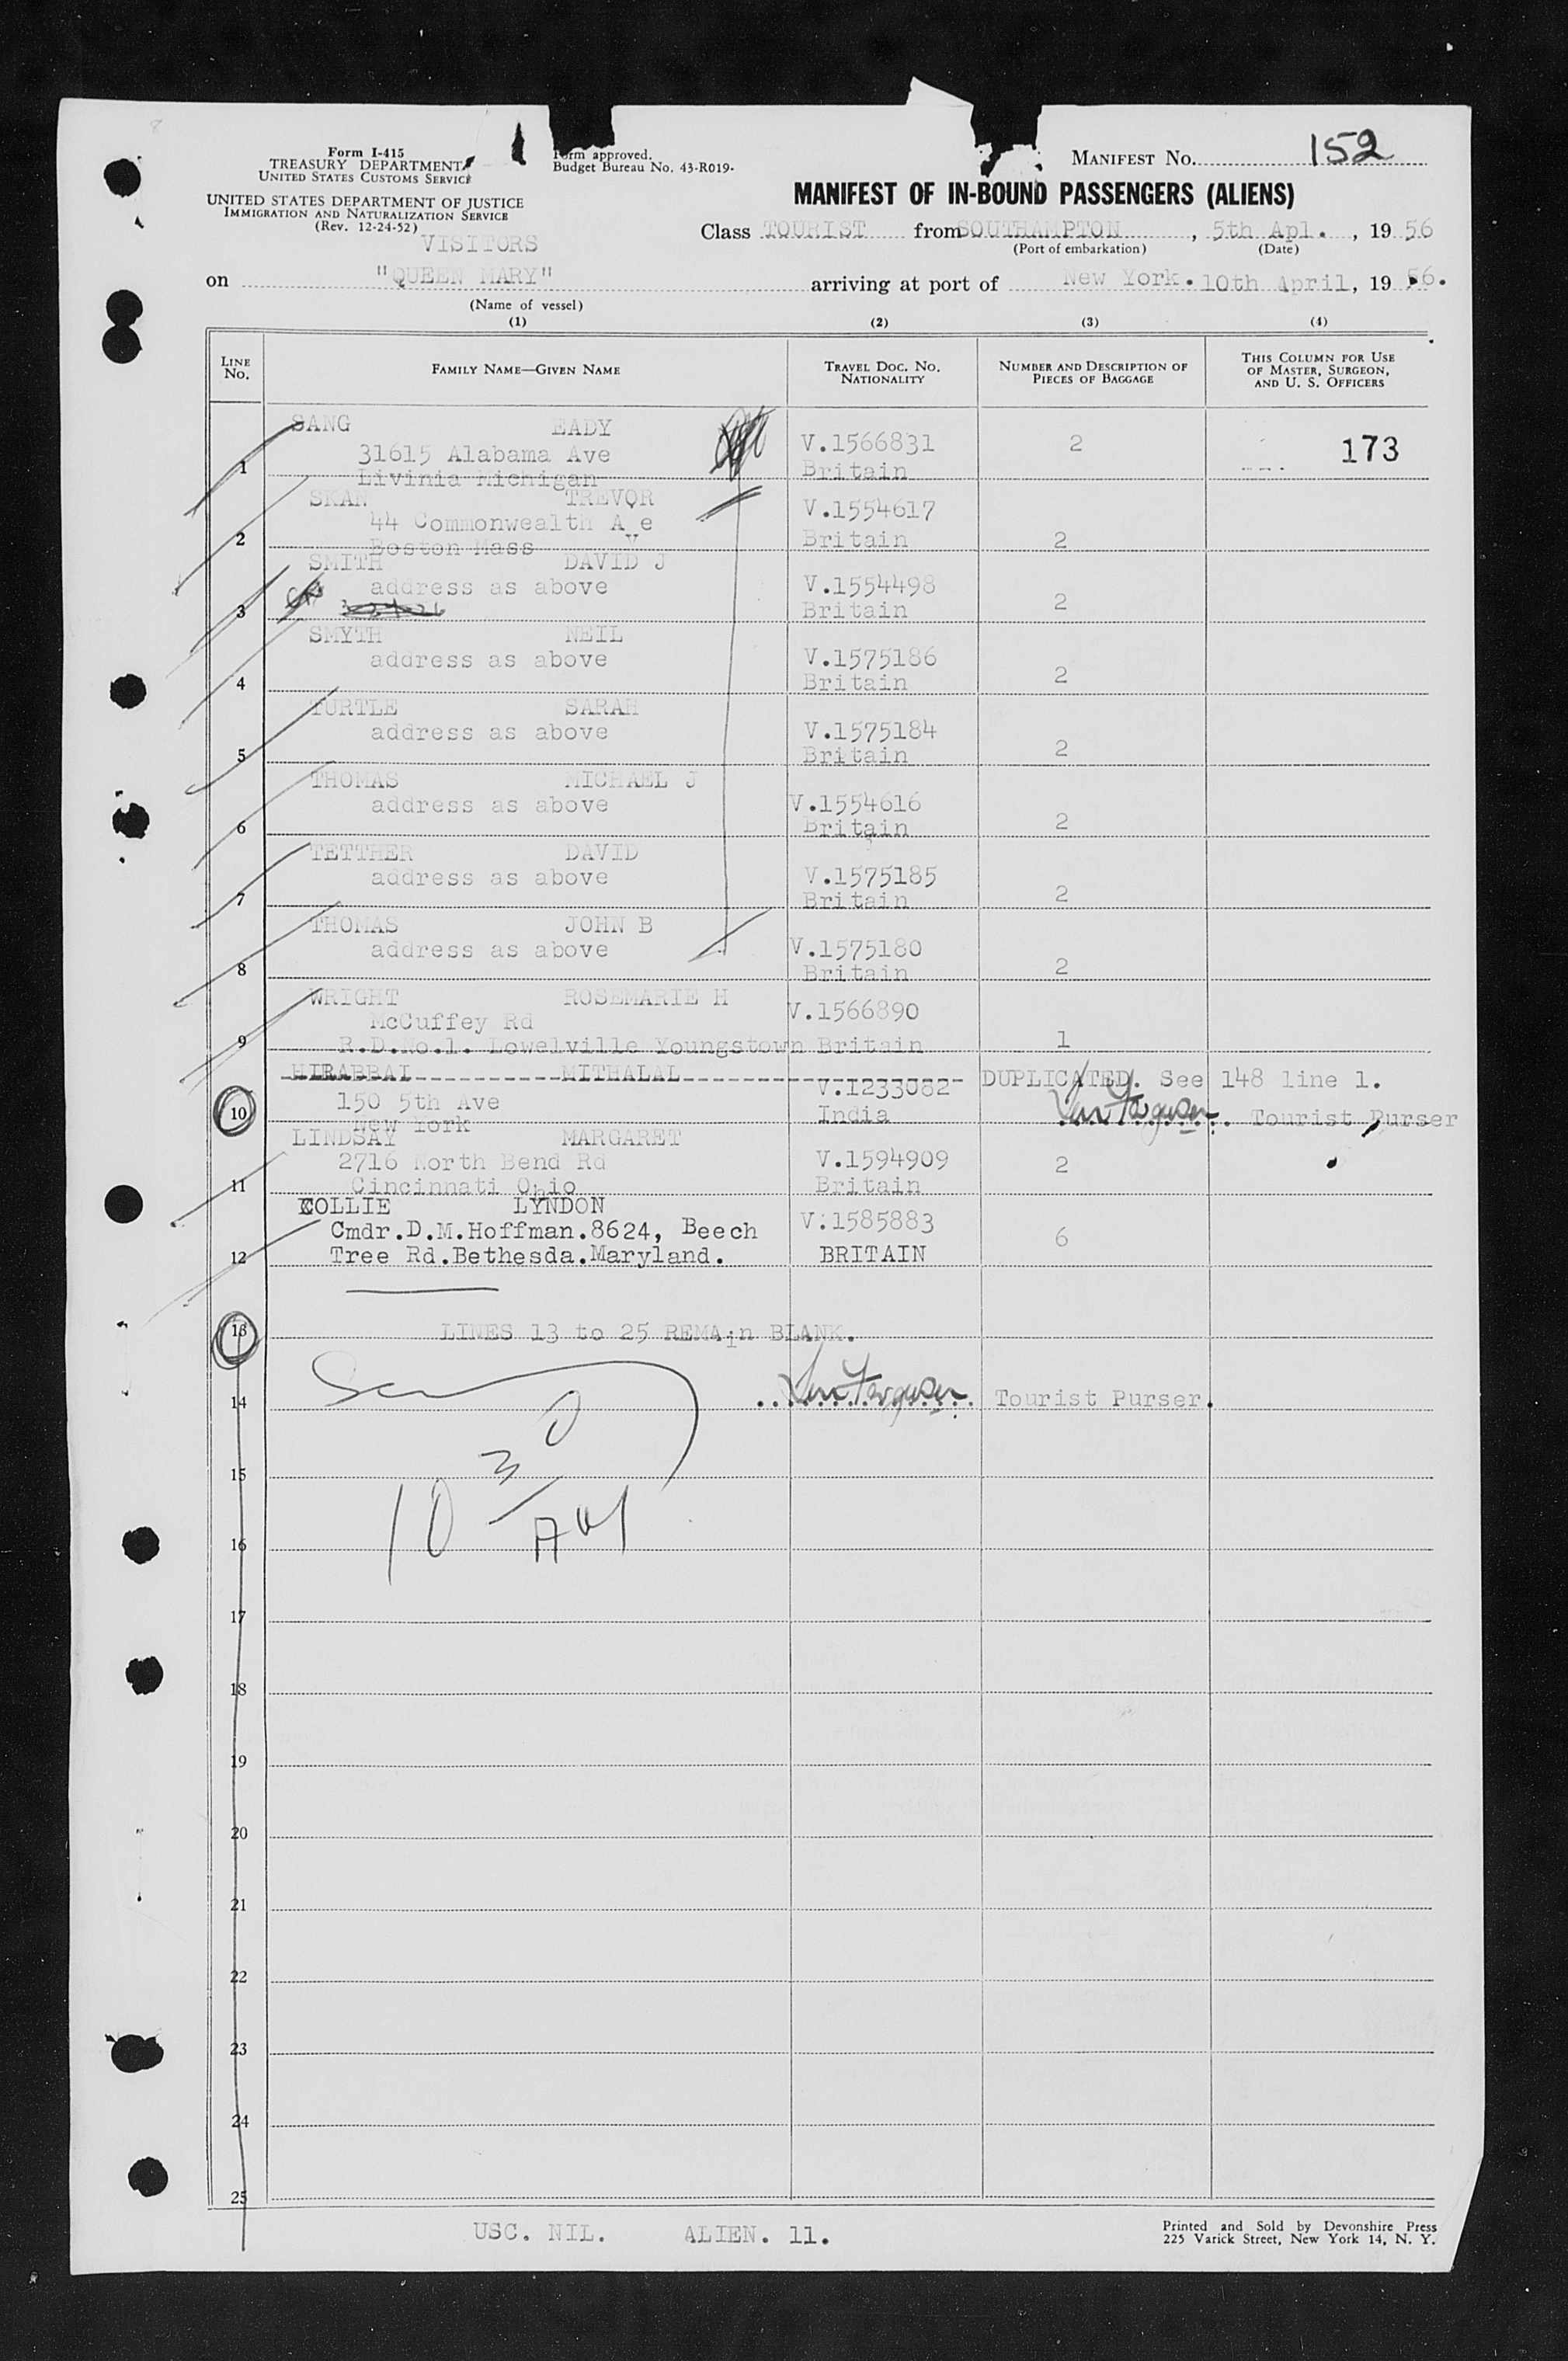 Form I-415
TREASURY DEPARTMENT
UNITED STATES CUSTOMS SERVICE
UNITED STATES DEPARTMENT OF JUSTICE
IMMIGRATION AND NATURALIZATION SERVICE
(Rev. 12-24-52)
VISITORS
Form approved.
Budget Bureau No. 43-R019-
MANIFEST NO. 152
MANIFEST OF IN-BOUND PASSENGERS (ALIENS)
Class TOURIST from SOUTHAMPTON, 5th Apl., 19 56
(Port of embarkation) (Date)
on "QUEEN MARY" arriving at port of New York. 10th April, 19 56.
(Name of vessel)
(1) (2) (3) (4)
LINE NO. FAMILY NAME—GIVEN NAME TRAVEL DOC. NO. NATIONALITY NUMBER AND DESCRIPTION OF PIECES OF BAGGAGE THIS COLUMN FOR USE OF MASTER, SURGEON, AND U. S. OFFICERS
SANG EADY
31615 Alabama Ave V.1566831 2 173
1 Livinia Michigan Britain
SKAN TREVOR V.1554617
44 Commonwealth A e
2 Boston Mass v Britain 2
SMITH DAVID J
address as above V.1554498
3 Britain 2
SMYTH NEIL
address as above V.1575186
4 Britain 2
TURTLE SARAH
address as above V.1575184
5 Britain 2
THOMAS MICHAEL J
address as above V.1554616
6 Britain 2
TETTHER DAVID
address as above V.1575185
7 Britain 2
THOMAS JOHN B
address as above V.1575180
8 Britain 2
WRIGHT ROSEMARIE H
McCuffey Rd V.1566890
9 R.D.No.1. Lowelville Youngstown Britain 1
HIRABBAI MITHALAL V.1233082 DUPLICATED. See 148 line 1.
10 150 5th Ave India Len Ferguson. Tourist Purser
New York
LINDSAY MARGARET
2716 North Bend Rd V.1594909 2
11 Cincinnati Ohio Britain
COLLIE LYNDON
Cmdr.D.M.Hoffman.8624, Beech V:1585883 6
12 Tree Rd.Bethesda.Maryland. BRITAIN
13 LINES 13 to 25 REMAin BLANK.
14 Len Ferguson. Tourist Purser.
15
10 30/AM
16
17
18
19
20
21
22
23
24
25
USC. NIL. ALIEN. 11.
Printed and Sold by Devonshire Press
225 Varick Street, New York 14, N. Y.